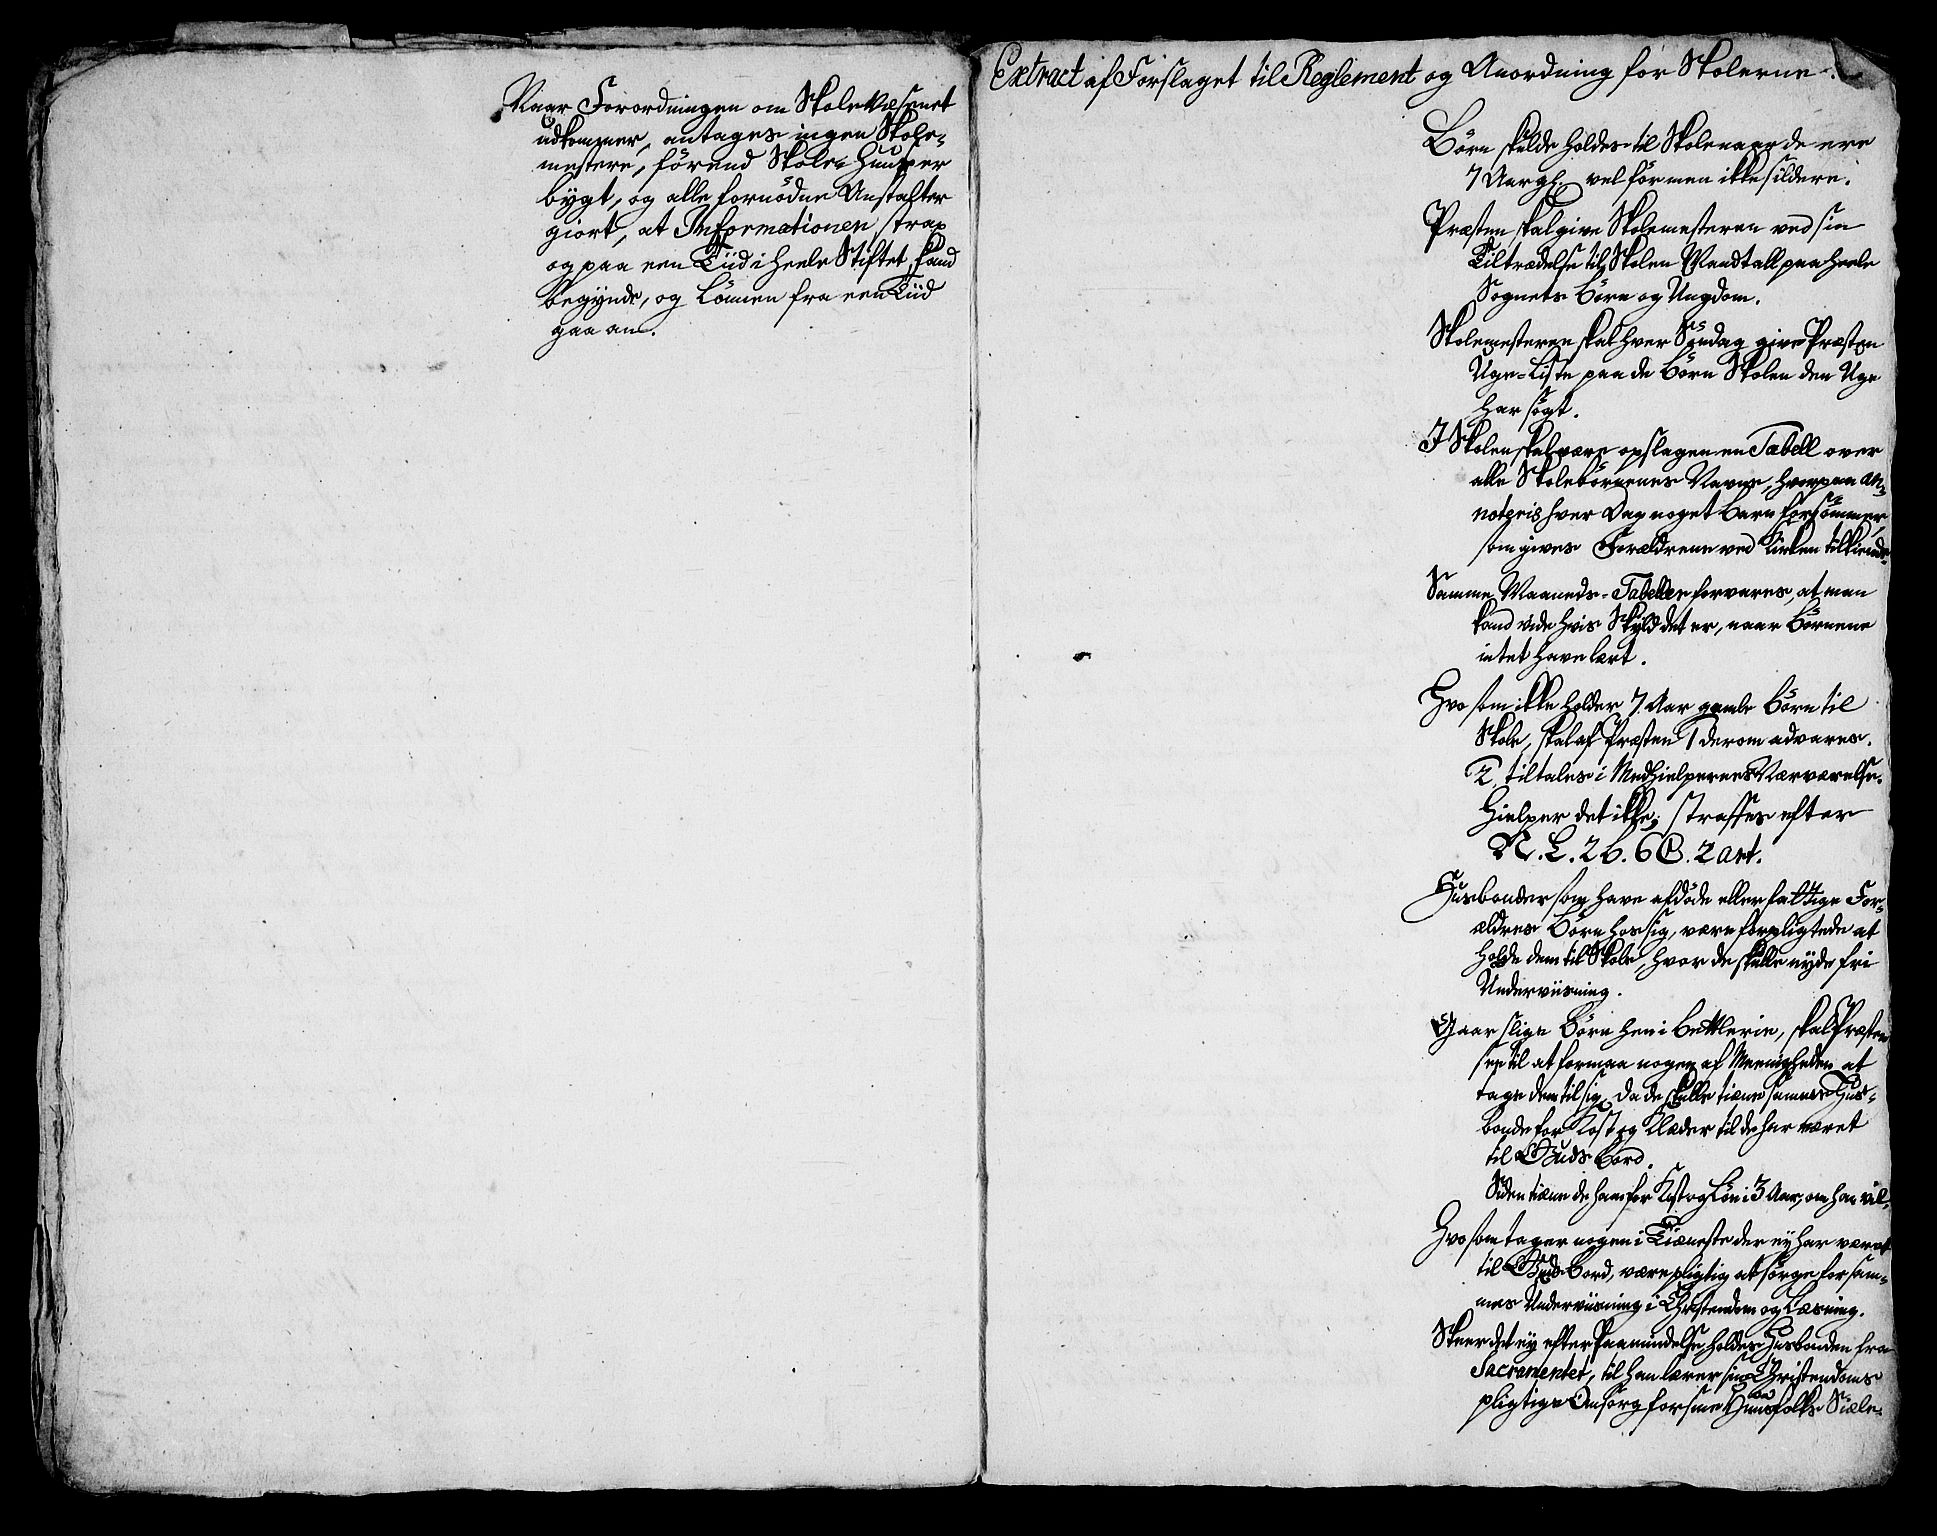 Naar Forordningen om Skole Væsenet
udkommer, antages ingen Skole-
mestere, förend Skole-Huuser
bygt, og alle fornödne Anstalter
giort, at Informationen strax
og paa een Tiid i heele Stiftet, kand
begynde, og Lönnen fra een Tiid
gaa an.
Extract af Forslaget til Reglement og Anordning for Skolerne.
Börn skulde holdes til Skole naar de ere
7 Aar gl. vel för men ikke sildere.
Præsten skal give Skolemesteren ved sin
Tiltrædelse til Skolen Mandtall paa heele
Sognets Börn og Ungdom.
Skolemesteren skal hver Söndag give Præsten
Uge-Liste paa de Börn Skolen den Uge
har sögt.
I Skolen skal være opslagen en Tabell over
alle Skolebörnenes Navne, hvorpaa an-
noteris hver Dag noget Barn forsömmer,
som gives Forældrene ved Kirken tilkiende.
Samme Maaneds-Tabeller forvares, at man
kand vide hvis Skyld det er, naar Börnene
intet have lært.
Hvo som ikke holder 7 Aar gamle Börn til
Skole, skal af Præsten 1 derom advares.
2, tiltales i Medhielpernes Nærværelse.
Hielper det ikke, straffes efter
N. L. 2 b. 6 C. 2 art.
Husbonder som have afdöde eller fattige For-
ældres Börn hos sig, være forpligtede at
holde dem til Skole, hvor de skulle nyde fri
Underviisning.
Gaar slige Börn hen i Bettlerie, skal Præsten
see til at formaa nogen af Meenigheden at
tage dem til sig, da de skulle tiene samme Hus-
bonde for Kost og Klæder til de har været
til Guds Bord.
Siden tiene de ham for Kost og Lön i 3 Aar, om han vil.
Hvo som tager nogen i Tieneste der ey har været
til Guds Bord, være pligtig at sörge for sam-
mes Underviisning i Christendom og Læsning.
Skeer det ey efter Paamindelse holdes Husbonden fra
Sacramentet, til han lærer sin Christendoms
pligtige Omsorg for sine Huusfolks Siæle.